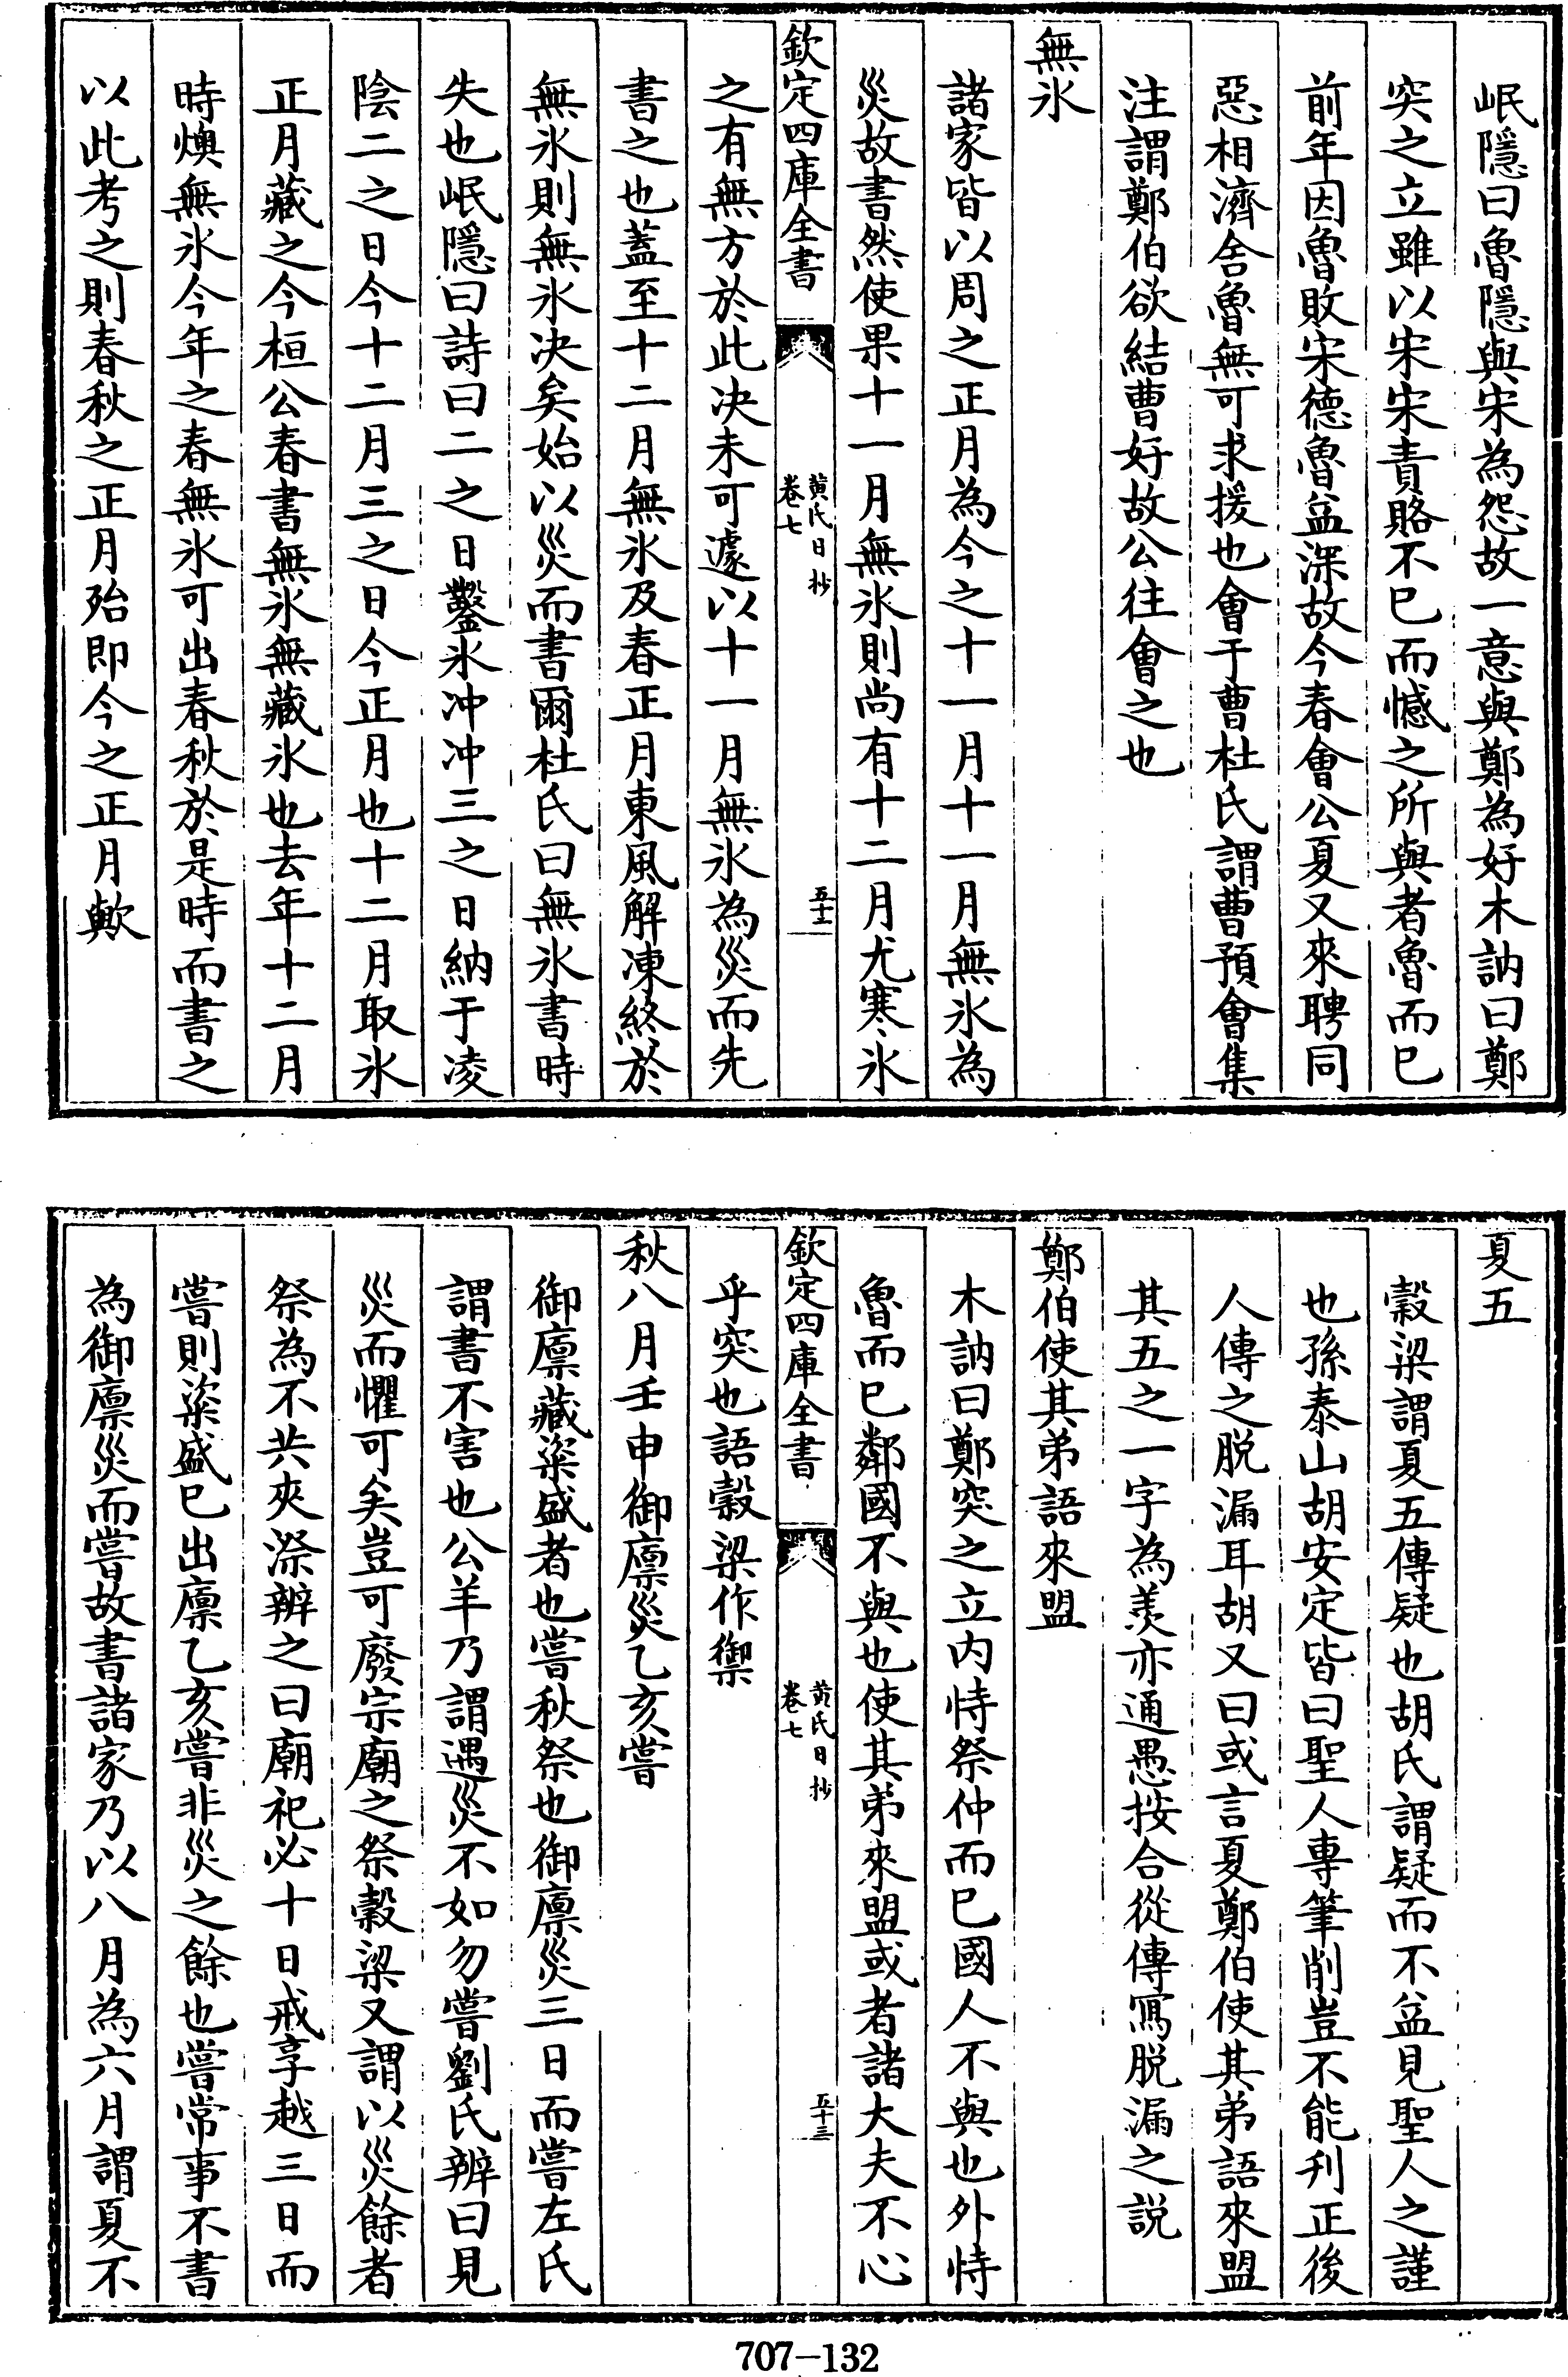 岷隱曰魯隱與宋為怨故一意與鄭為好木訥曰鄭
突之立雖以宋宋責賂不已而憾之所與者魯而已
前年因魯敗宋德魯益深故今春會公夏又來聘同
惡相濟舍魯無可求援也會于曹杜氏謂曹預會集
注謂鄭伯欲結曹好故公往會之也
無氷
諸家皆以周之正月為今之十一月十一月無氷為
災故書然使果十一月無氷則尚有十二月尤寒氷
欽定四庫全書
黄氏日抄
卷七
五十二
之有無方於此决未可遽以十一月無氷為災而先
書之也蓋至十二月無氷及春正月東風解凍終於
無氷則無氷决矣始以災而書爾杜氏曰無氷書時
失也岷隱曰詩曰二之日鑿氷冲冲三之日納于凌
陰二之日今十二月三之日今正月也十二月取氷
正月藏之今桓公春書無氷無藏氷也去年十二月
時燠無氷今年之春無氷可出春秋於是時而書之
以此考之則春秋之正月殆即今之正月歟
夏五
榖梁謂夏五傳疑也胡氏謂疑而不益見聖人之謹
也孫泰山胡安定皆曰聖人專筆削豈不能刋正後
人傳之脱漏耳胡又曰或言夏鄭伯使其弟語來盟
其五之一字為羨亦通愚按合從傳寫脱漏之説
鄭伯使其弟語來盟
木訥曰鄭突之立内恃祭仲而已國人不與也外恃
魯而已鄰國不與也使其弟來盟或者諸大夫不心
欽定四庫全書
黄氏日抄
卷七
五十三
乎突也語榖梁作禦
秋八月壬申御廪災乙亥嘗
御廪藏粢盛者也嘗秋祭也御廪災三日而嘗左氏
謂書不害也公羊乃謂遇災不如勿嘗劉氏辨曰見
災而懼可矣豈可廢宗廟之祭榖梁又謂以災餘者
祭為不共夾漈辨之曰廟祀必十日戒享越三日而
嘗則粢盛已出廪乙亥嘗非災之餘也嘗常事不書
為御廪災而嘗故書諸家乃以八月為六月謂夏不
707-132